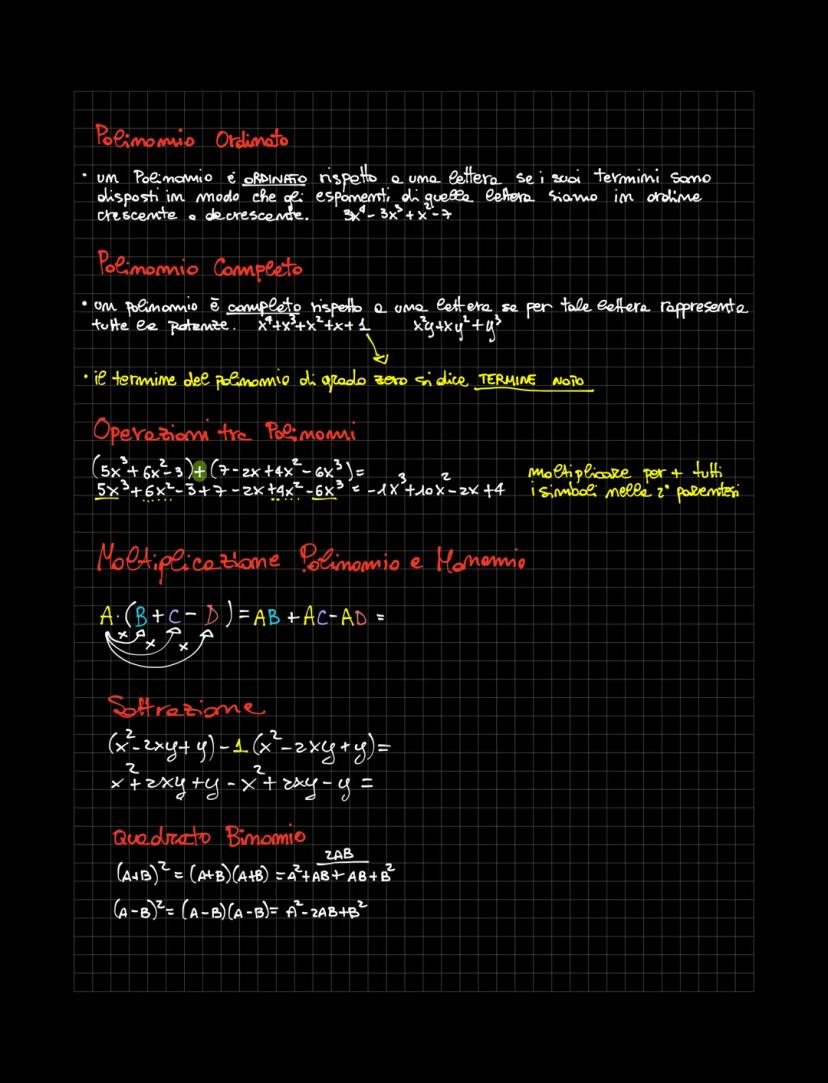 Polinomio Ordinato
• un Polinomio è ORDINATO rispetto a una lettera se i suoi termini sono
disposti in modo che gli esponenti di quella lettera siano in ordine
crescente o decrescente. 3x⁴ - 3x³ + x² - 7
Polinomio Completo
• un polinomio è completo rispetto a una lettera se per tale lettera rappresenta
tutte le potenze. x⁴+x³+x²+x+1 x²y+xy²+y³
• il termine del polinomio di grado zero si dice TERMINE NOTO
Operazioni tra Polinomi
(5x³+6x²-3)+(7-2x+4x²-6x³)= moltiplicare per + tutti
5x³+6x²-3+7-2x+4x²-6x³ = -1x³+10x²-2x+4 i simboli nelle 2° parentesi
Moltiplicazione Polinomio e Monomio
A·(B+C-D)=AB+AC-AD=
x x x
Sottrazione
(x²-2xy+y)-1(x²-2xy+y)=
x²+2xy+y-x²+2xy-y=
Quadrato Binomio
2AB
(A+B)²=(A+B)(A+B)=A²+AB+AB+B²
(A-B)²=(A-B)(A-B)=A²-2AB+B²